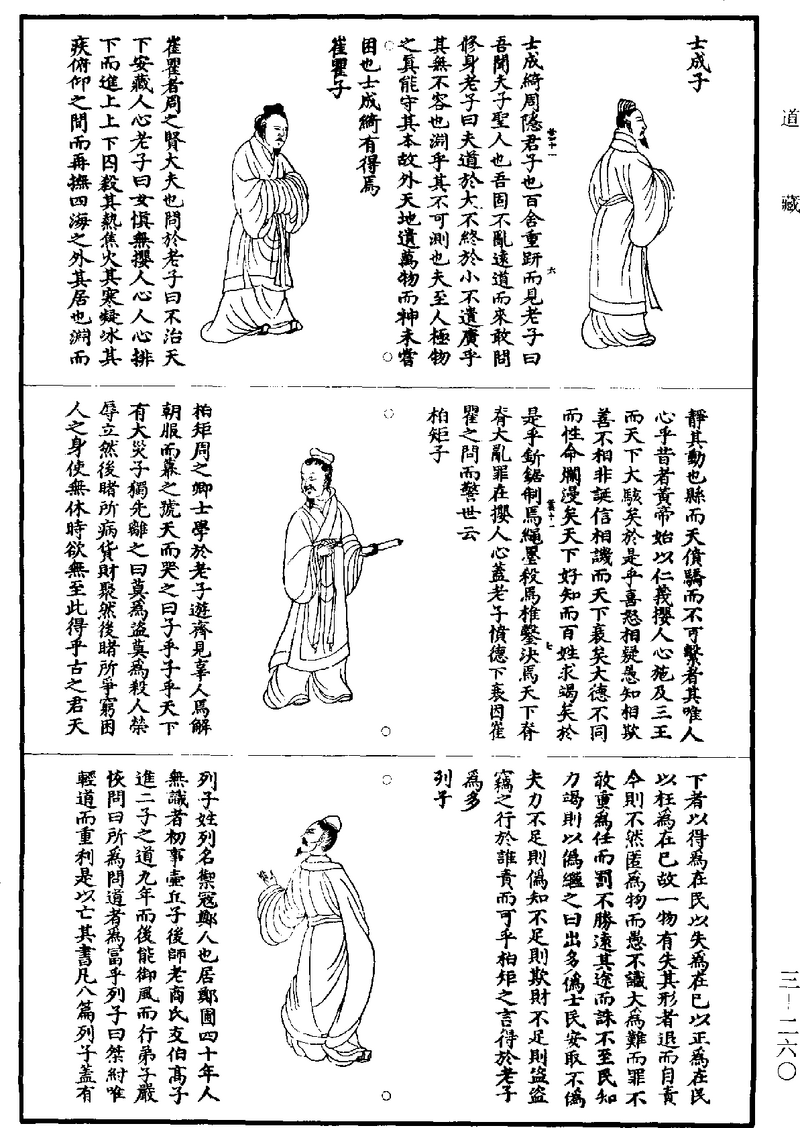 道藏
士成子
士成綺周隱君子也百舍重趼而見老子曰
吾聞夫子聖人也吾固不亂遠道而來敢問
修身老子曰夫道於大不終於小不遺廣乎
其無不容也淵乎其不可測也夫至人極物
之真能守其本故外天地遺萬物而神未嘗
困也士成綺有得焉
崔瞿子
崔瞿者周之賢大夫也問於老子曰不治天
下安藏人心老子曰女慎無攖人心人心排
下而進上上下囚殺其熱焦火其寒凝冰其
疾俯仰之間而再撫四海之外其居也淵而
靜其動也縣而天僨驕而不可繫者其唯人
心乎昔者黃帝始以仁義攖人心施及三王
而天下大駭矣於是乎喜怒相疑愚知相欺
善不相非誕信相譏而天下衰矣大德不同
而性命爛漫矣天下好知而百姓求竭矣於
是乎釿鋸制焉繩墨殺焉椎鑿決焉天下脊
脊大亂罪在攖人心蓋老子憤德下衰因崔
瞿之問而警世云
柏矩子
柏矩周之卿士學於老子遊齊見辜人焉解
朝服而幕之號天而哭之曰子乎子乎天下
有大災子獨先離之曰莫為盜莫為殺人榮
辱立然後睹所病貨財聚然後睹所爭窮困
人之身使無休時欲無至此得乎古之君天
下者以得為在民以失為在已以正為在民
以枉為在已故一物有失其形者退而自責
今則不然匿為物而愚不識大為難而罪不
敢重為任而罰不勝遠其途而誅不至民知
力竭則以偽繼之日出多偽士民安取不偽
夫力不足則偽知不足則欺財不足則盜盜
竊之行於誰責而可乎柏矩之言得於老子
為多
列子
列子姓列名禦寇鄭人也居鄭圃四十年人
無識者初事壺丘子後師老商氏支伯高子
進二子之道九年而後能御風而行弟子嚴
恢問曰所為問道者為富乎列子曰桀紂唯
輕道而重利是以亡其書凡八篇列子蓋有
三-二六〇